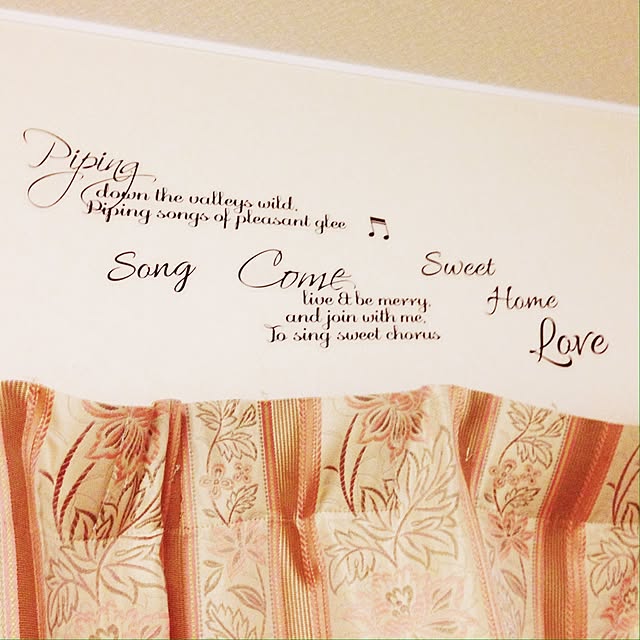 Piping
down the valleys wild,
Piping songs of pleasant glee
Song
Come
live & be merry,
and join with me,
To sing sweet chorus
Sweet
Home
Love